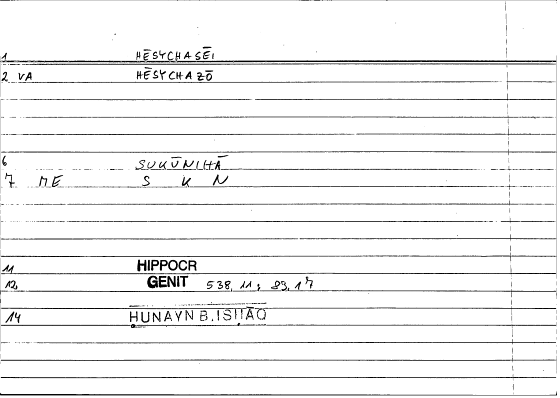 1 HĒSYCHASĒI
2 VA HĒSYCHAZŌ
6 SUKŪNIHĀ
7 ME S K N
11 HIPPOCR
12 GENIT 538, 11; 83, 17
14 ḤUNAYN B. ISḤĀQ